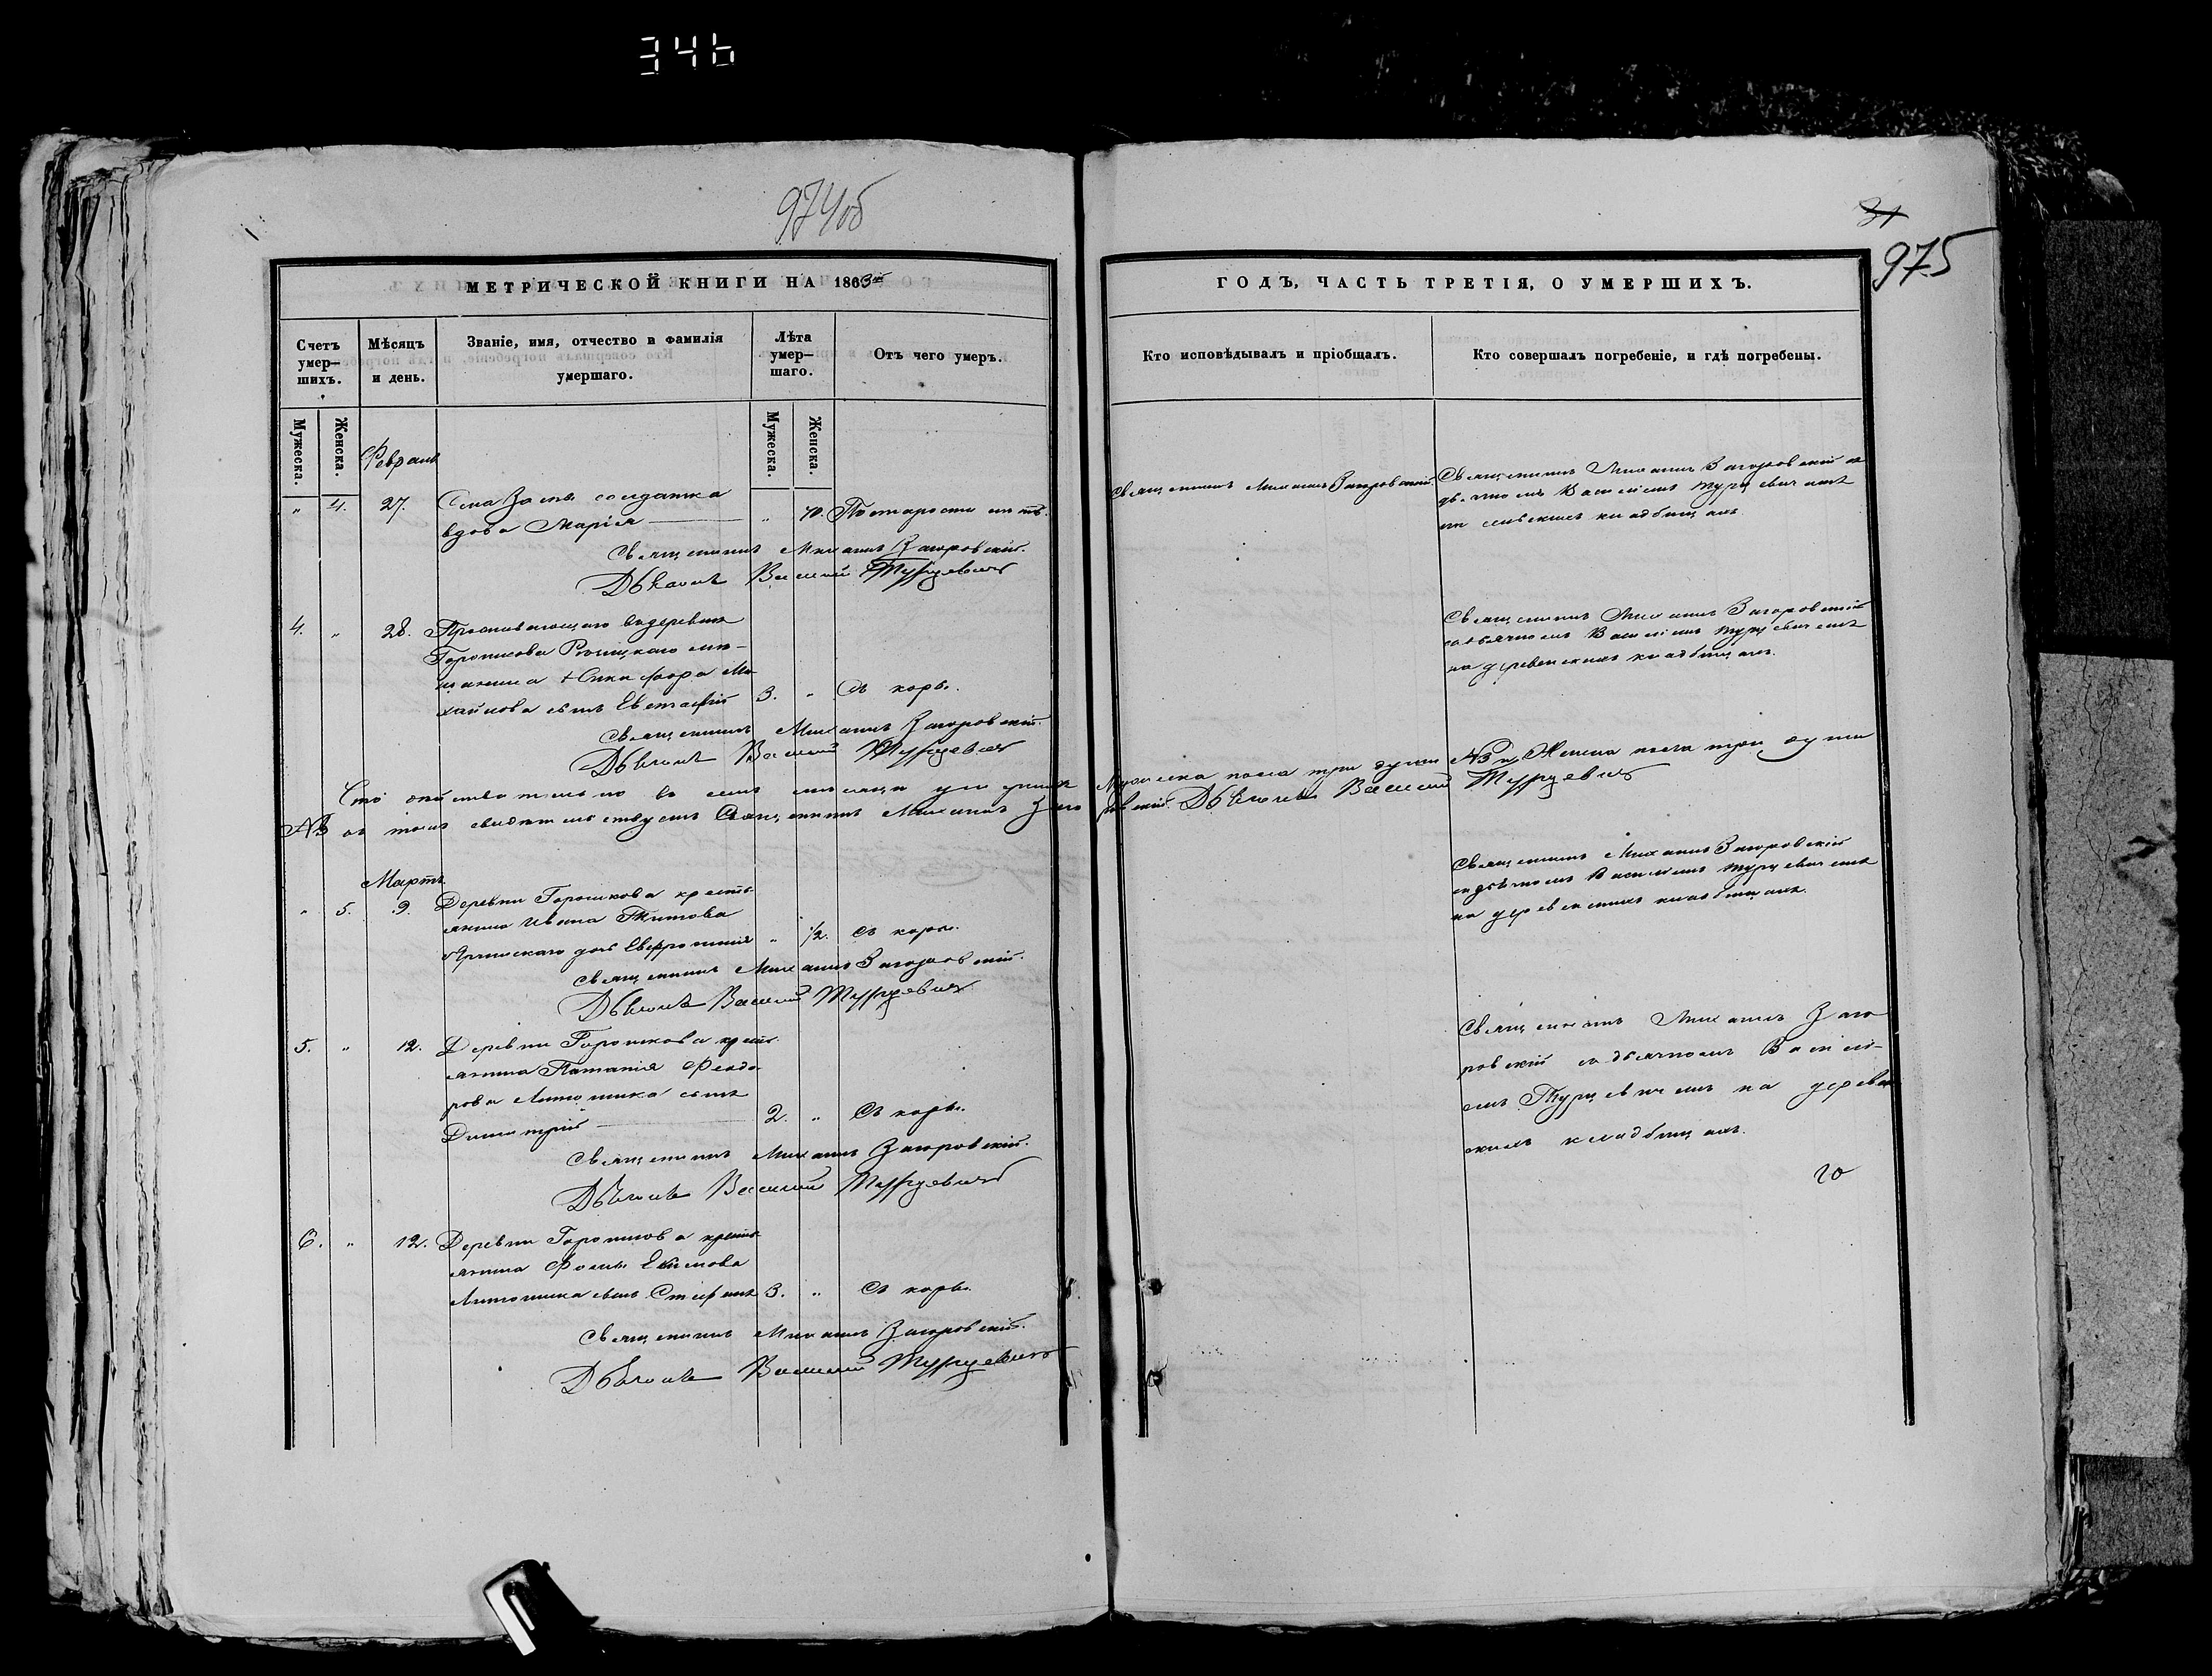 346
974об
31
975
МЕТРИЧЕСКОЙ КНИГИ НА 1863й
ГОДЪ, ЧАСТЬ ТРЕТІЯ, О УМЕРШИХЪ.
Счетъ умер—шихъ.
Мѣсяцъ и день.
Званіе, имя, отчество и фамилія умершаго.
Лѣта умер—шаго.
Отъ чего умеръ.
Кто исповѣдывалъ и пріобщалъ.
Кто совершалъ погребеніе, и гдѣ погребены.
Мужеска.
Женска.
Мужеска.
Женска.
Февраль
" 4. 27. Села солдатка
вдова Марія " 70. По старости лѣтъ.
Священникъ Михаилъ Загоровскій
Священникъ Михаилъ Загоровскій съ
дьячкомъ Василіемъ Турцевичемъ
на сельскомъ кладбищахъ
Священникъ Михаилъ Загоровскій.
Дьячокъ Василий Турцевичъ
4. " 28. Проживающаго въ деревнѣ
Горошкова Рѣчицкаго мѣ-
щанина Никифора Ми-
хайлова сынъ Евстафій 3. " Съ кори.
Священникъ Михаилъ Загоровскій
съ дьячкомъ Василіемъ Турцевичемъ
на деревенскихъ кладбищахъ.
Священникъ Михаилъ Загоровскій.
Дьячокъ Василий Турцевичъ
Что дѣйствительно въ семъ мѣсяцѣ умершихъ Мужеска пола три души NB и Женска пола три души
NB въ томъ свидѣтельствуемъ Священникъ Михаилъ Загоровскій. Дьячокъ Василий Турцевичъ
Мартъ.
" 5. 9. Деревни Горошкова кресть-
янина Ивана Титова
дочь Евфросинія " 1/2. Съ кори.
Священникъ Михаилъ Загоровскій
съ дьячкомъ Василіемъ Турцевичемъ
на деревенскихъ кладбищахъ.
Священникъ Михаилъ Загоровскій.
Дьячокъ Василий Турцевичъ
5. " 12. Деревни Горошкова крест-
янина Феодо-
рова сынъ
Димитрій 2. " Съ кори.
Священникъ Михаилъ Заго-
ровскій съ дьячкомъ Василі-
емъ Турцевичемъ на деревен-
скихъ кладбищахъ.
Священникъ Михаилъ Загоровскій.
Дьячокъ Василий Турцевичъ
6. " 12. Деревни Горошкова кресть-
янина Фомы Екимова
сынъ Стефанъ 3. " Съ кори.
Священникъ Михаилъ Загоровскій.
Дьячокъ Василий Турцевичъ